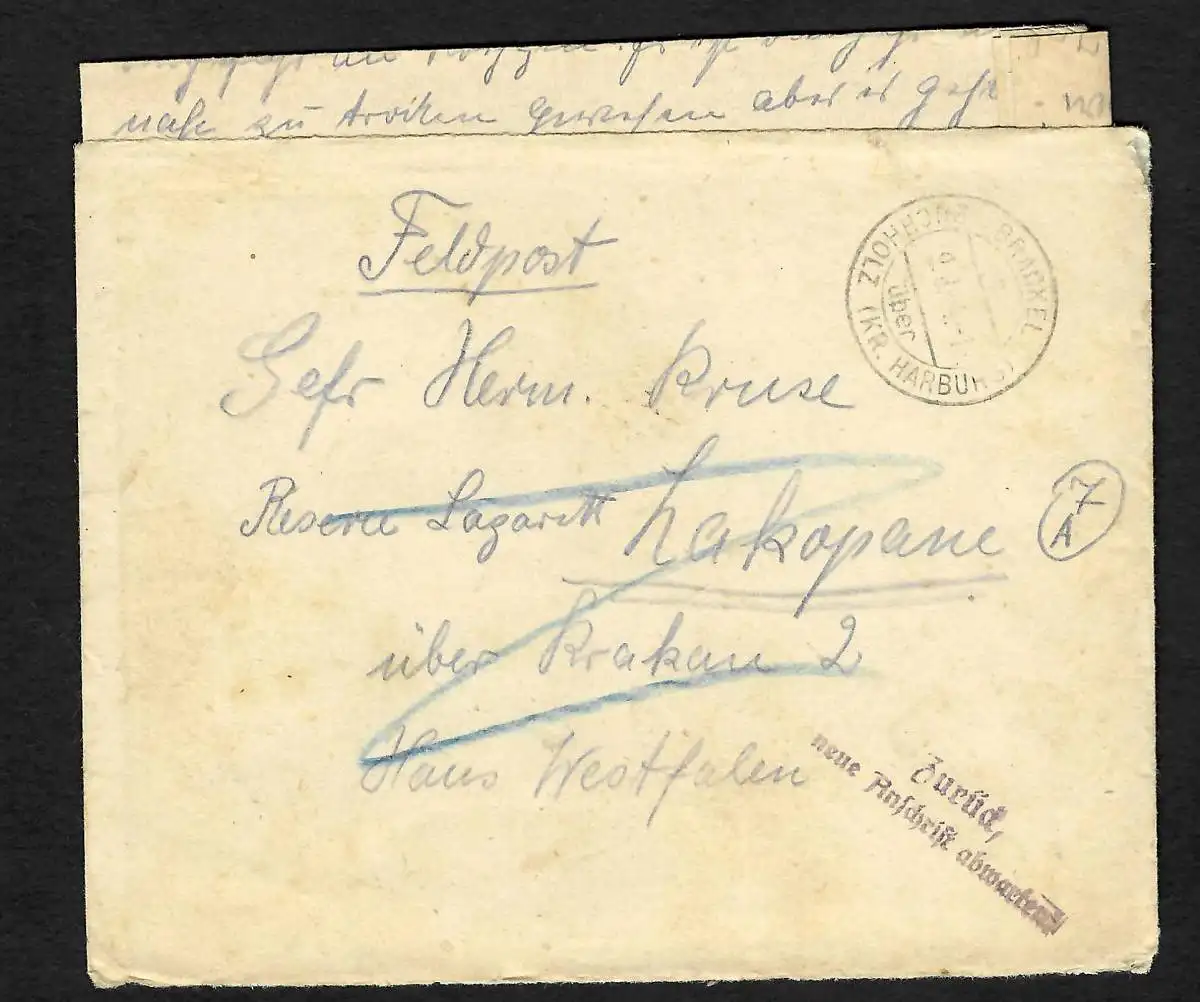 nahe zu trocken gewesen aber es geht
Feldpost
BRACKEL über BUCHHOLZ (KR. HARBURG)
Gefr Herm. Kruse
Reserve Lazarett Zakopane
7
A
über Krakau 2
Haus Westfalen
Zurück,
neue Anschrift abwarten